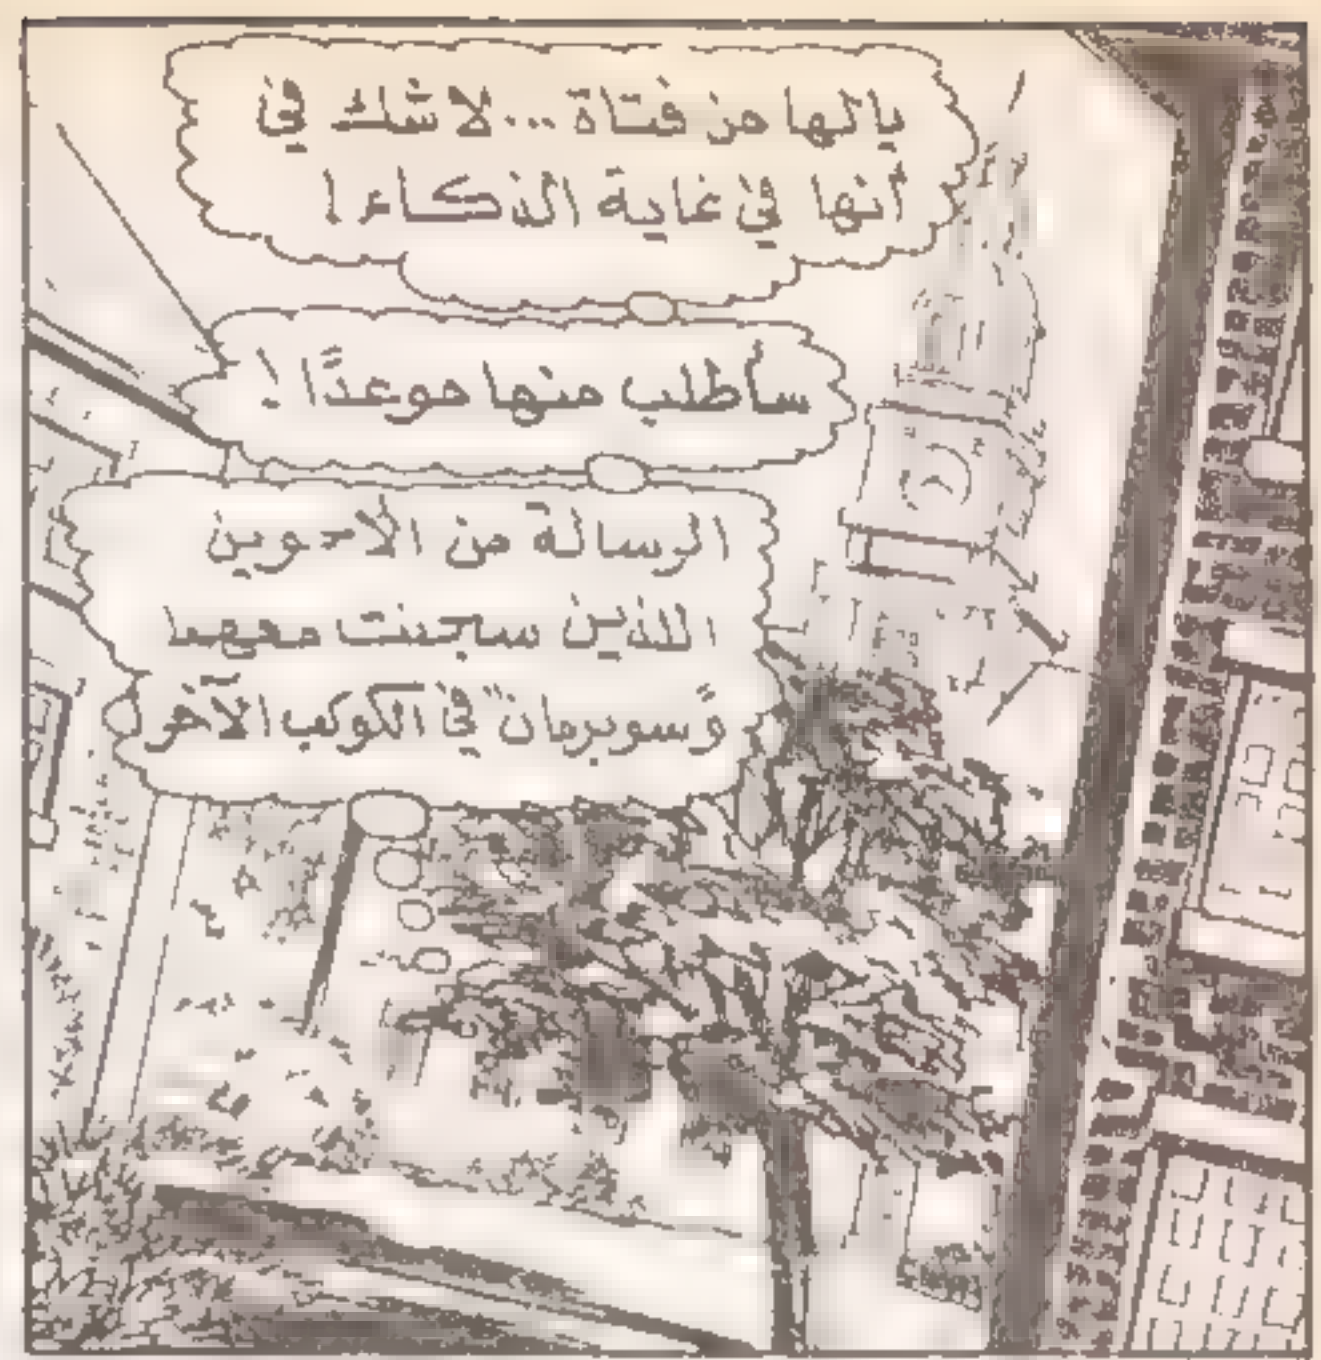 يالها من فتاة...لا شك في
أنها في غاية الذكاء!
سأطلب منها موعدًا!
الرسالة من الأخوين
اللذين سجنت معهما
و"سوبرمان" في الكوكب الآخر